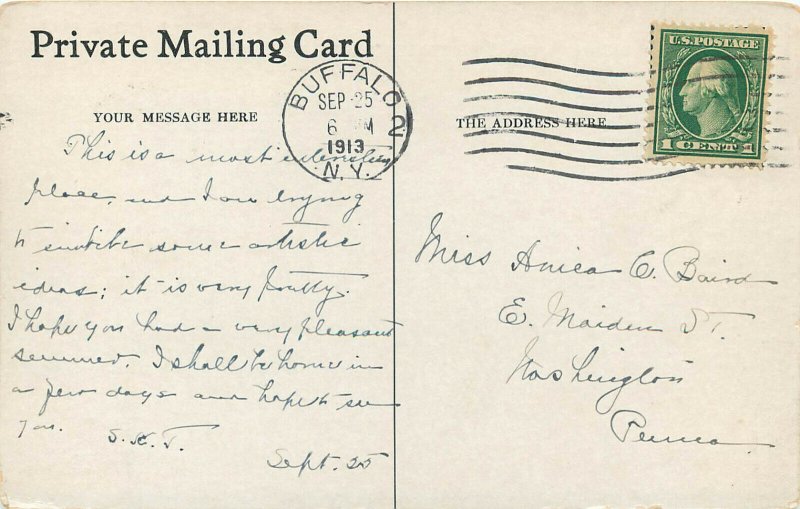 Private Mailing Card
YOUR MESSAGE HERE
This is a most interesting
place, and I am trying
to imbibe some artistic
ideas; it is very pretty.
I hope you had a very pleasant
summer. I shall be home in
a few days and hope to see
you.
Sept. 25
BUFFALO 2
SEP 25
6 M
1913
N.Y.
THE ADDRESS HERE
U.S. POSTAGE
1 CENT 1
Miss C. Baird
E. Maiden St.
Washington
Penna